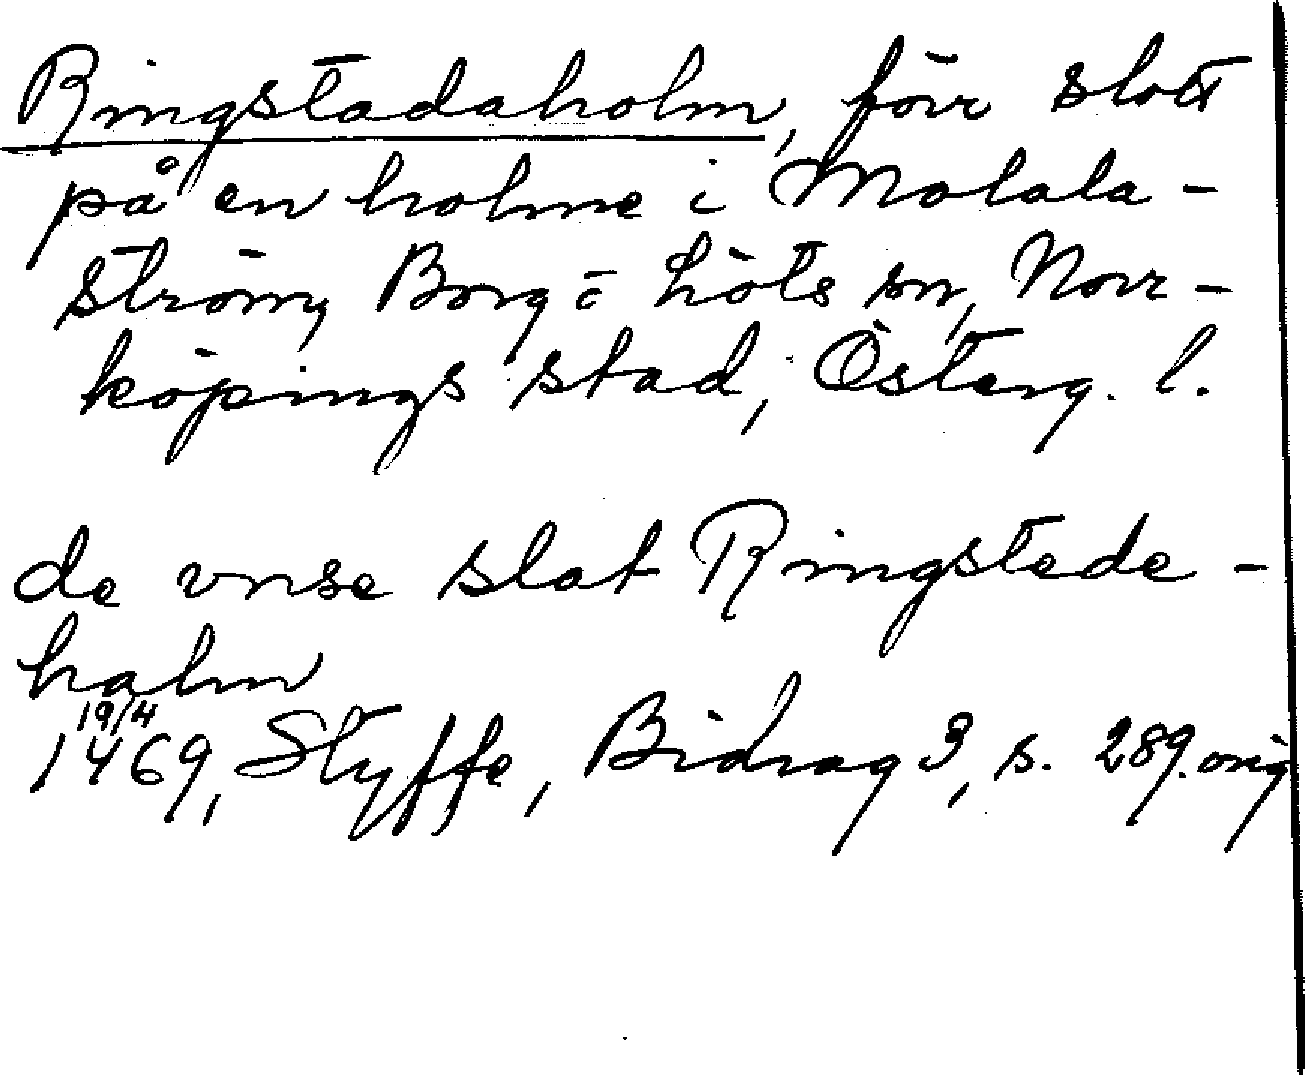 Ringstadaholm, förr slott
på en holme i Motala-
ström, Borg o Löts sn, Norr-
köpings stad, Österg. l.
de vnse slat Ringstede-
halm
19/4
1469, Styffe, Bidrag 3, s. 289. orig